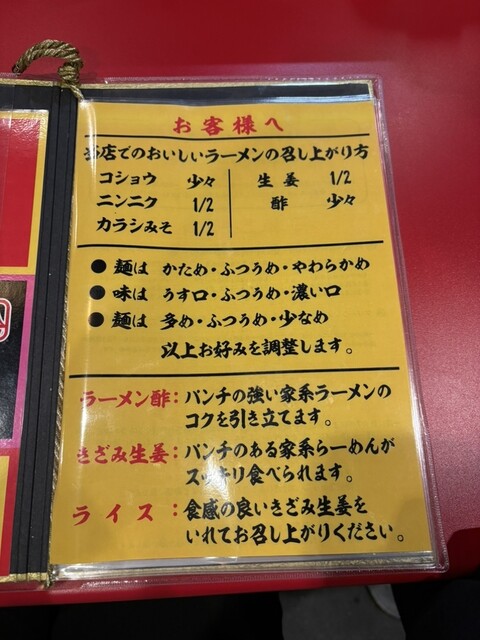 お客様へ
当店でのおいしいラーメンの召し上がり方
コショウ 少々 生姜 1/2
ニンニク 1/2 酢 少々
カラシみそ 1/2
●麺は かため・ふつうめ・やわらかめ
●味は うす口・ふつうめ・濃い口
●麺は 多め・ふつうめ・少なめ
以上お好みを調整します。
ラーメン酢：パンチの強い家系ラーメンの
コクを引き立てます。
きざみ生姜：パンチのある家系らーめんが
スッキリ食べられます。
ライス：食感の良いきざみ生姜を
いれてお召し上がりください。